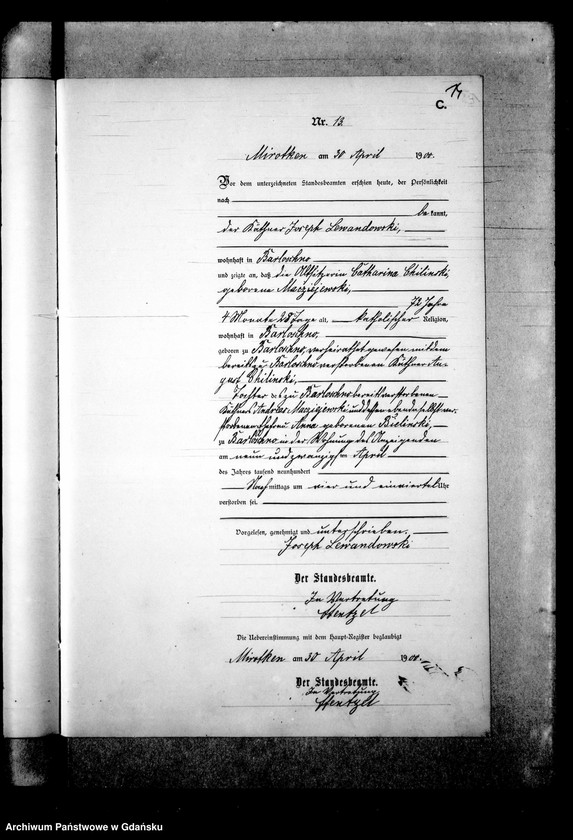 C.
Nr. 13.
Mirotken am 30 April 1900.
Vor dem unterzeichneten Standesbeamten erschien heute, der Persönlichkeit
nach
bekannt,
der Käthner Joseph Lewandowski,
wohnhaft in Barloschno
und zeigte an, daß die Altsitzerin Catharina Chilinski,
geborene Maczijewski,
72 Jahre
4 Monate 28 Tage alt, katholischer Religion,
wohnhaft in Barloschno,
geboren zu Barloschno, verheirathet gewesen mit dem
bereits zu Barloschno verstorbenen Käthner Au-
gust Chilinski,
Tochter des zu Barloschno bereits verstorbenen
Käthners Andreas Maczijewski und dessen ebendaselbst ver-
storbenen Ehefrau Anna geborenen Bielinski,
zu Barloschno in der Wohnung des Anzeigenden
am neun und zwanzigsten April
des Jahres tausend neunhundert
Nachmittags um vier und einviertel Uhr
verstorben sei.
Vorgelesen, genehmigt und unterschrieben.
Joseph Lewandowski
Der Standesbeamte.
In Vertretung
Hentzel
Die Uebereinstimmung mit dem Haupt-Register beglaubigt
Mirotken am 30 April 1900.
Der Standesbeamte.
In Vertretung
Hentzel
Archiwum Państwowe w Gdańsku